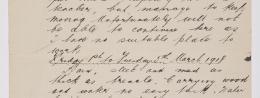 weather, but manage to keep
moving. Unfortunately will not
be able to continue here as
I had no suitable place to
work.
Friday 1st to Tuesday 5th March 1918
Rain, sleet and mud as
thick as treacle. Carrying wood
and water, no easy task, Water